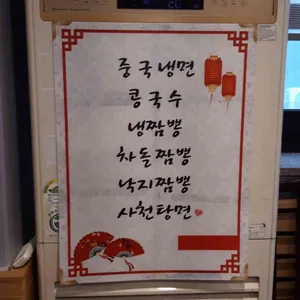 중국냉면
콩국수
냉짬뽕
차돌짬뽕
낙지짬뽕
사천탕면